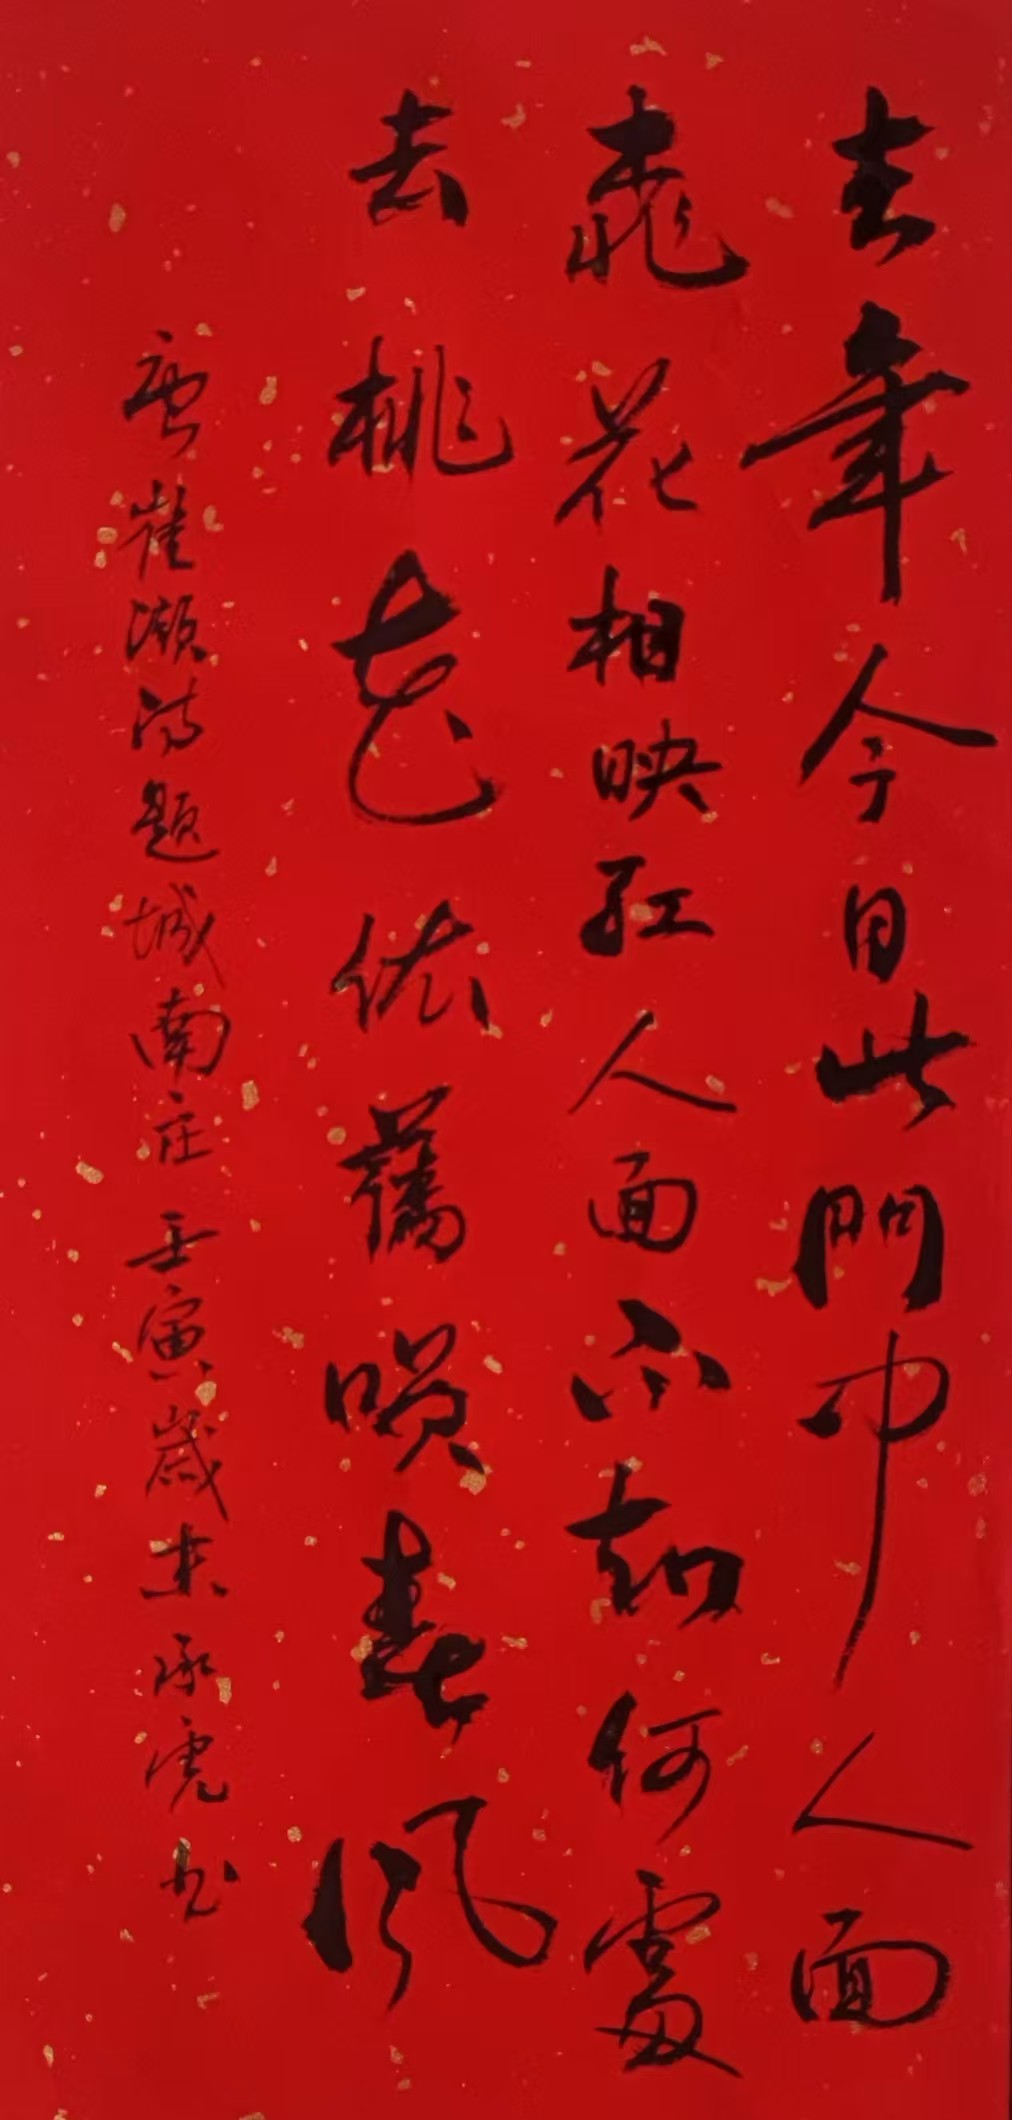 去年今日此門中人面
桃花相映红人面不知何處
去桃花依舊㗲春風
唐崔灏诗题城南庄壬寅歲末承虎书